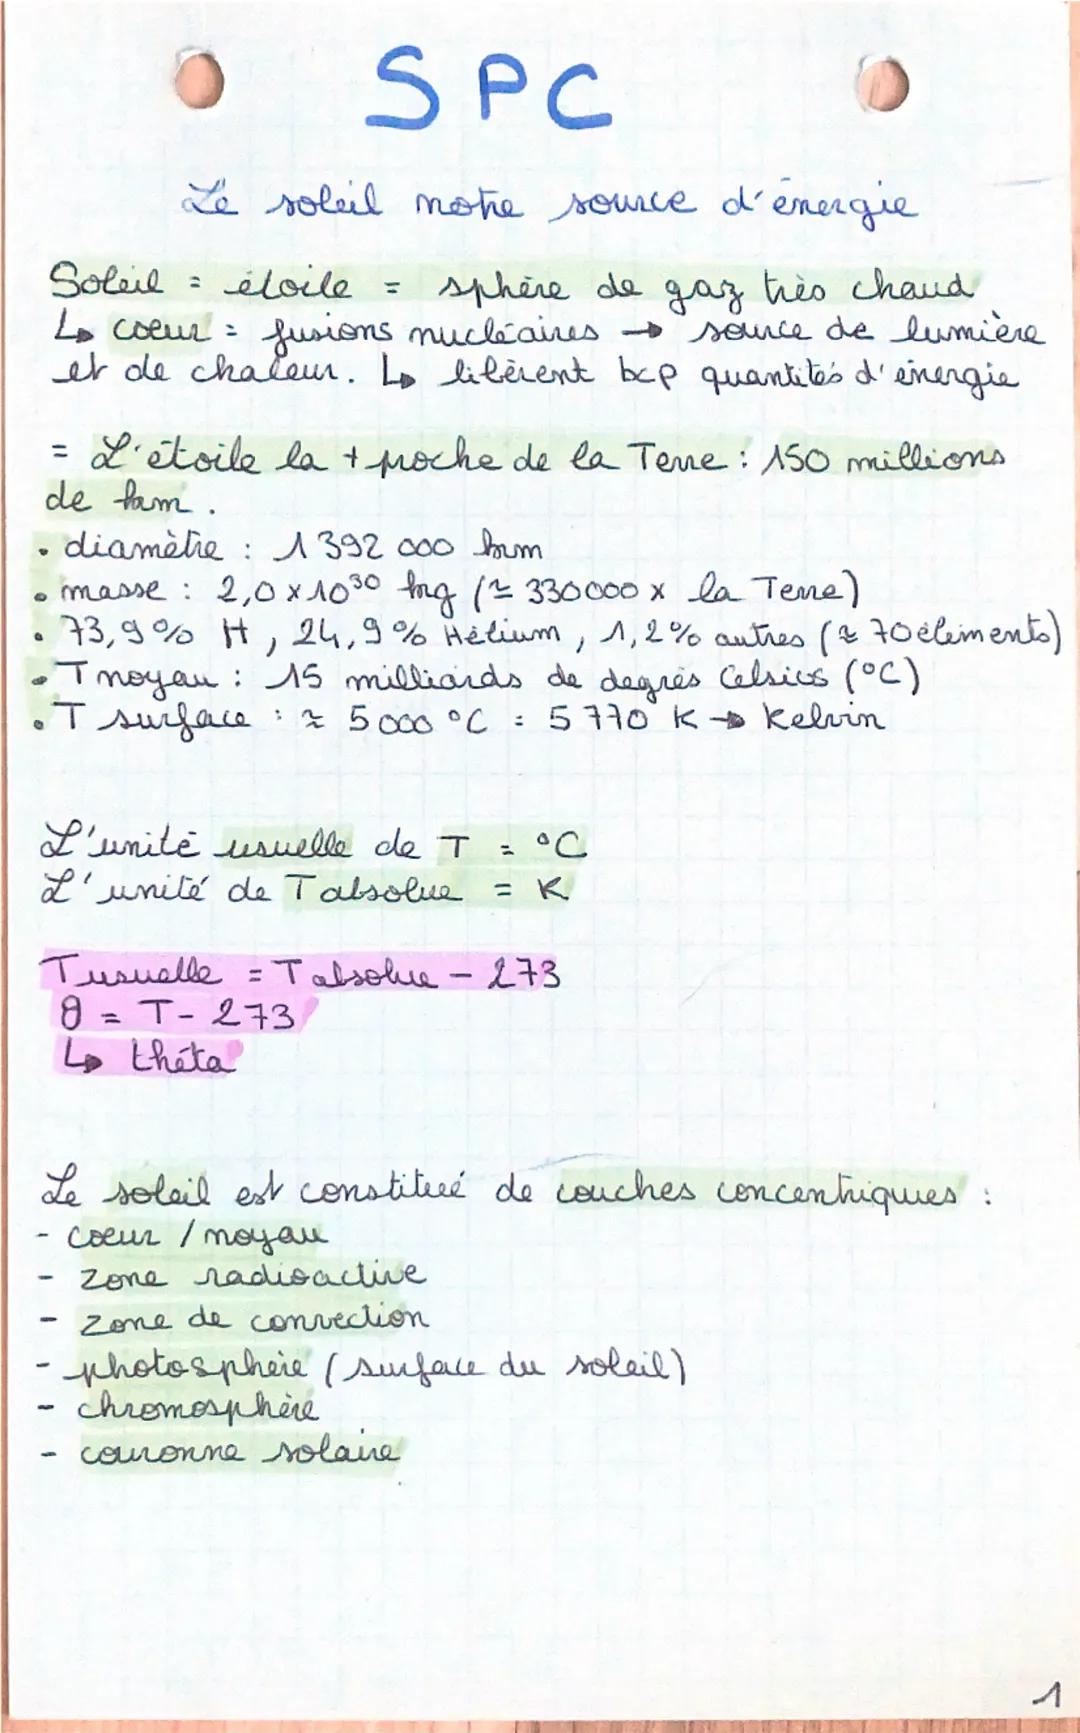 SPC
Le soleil notre source d'énergie
Soleil = étoile = sphère de gaz très chaud
↳ coeur = fusions nucléaires → source de lumière
et de chaleur. ↳ libèrent bcp quantités d'énergie
= L'étoile la + proche de la Terre : 150 millions
de km.
• diamètre : 1 392 000 km
• masse : 2,0 x 10³⁰ kg (≃ 330000 x la Terre)
• 73,9% H, 24,9% Hélium, 1,2% autres (≃ 70 éléments)
• T noyau : 15 milliards de degrés Celsius (°C)
• T surface : ≃ 5 000 °C = 5 770 K → Kelvin
L'unité usuelle de T = °C
L'unité de T absolue = K
T usuelle = T absolue - 273
θ = T - 273
↳ thêta
Le soleil est constitué de couches concentriques :
- coeur / noyau
- zone radioactive
- zone de convection
- photosphère (surface du soleil)
- chromosphère
- couronne solaire
1